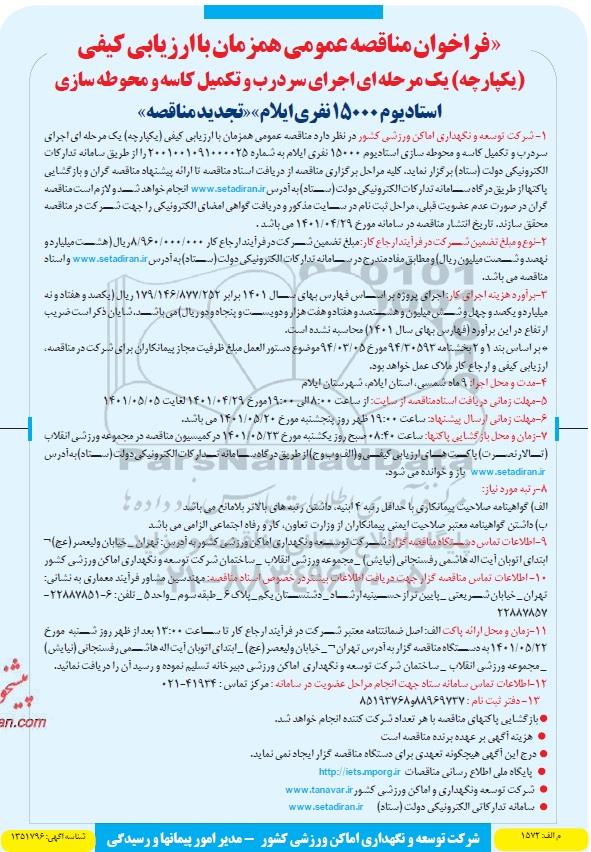 «فراخوان مناقصه عمومی همزمان با ارزیابی کیفی
(یکپارچه) یک مرحله ای اجرای سردرب و تکمیل کاسه و محوطه سازی
استادیوم ۱۵۰۰۰ نفری ایلام» «تجدید مناقصه»
۱- شرکت توسعه و نگهداری اماکن ورزشی کشور در نظر دارد مناقصه عمومی همزمان با ارزیابی کیفی (یکپارچه) یک مرحله ای اجرای
سردرب و تکمیل کاسه و محوطه سازی استادیوم ۱۵۰۰۰ نفری ایلام به شماره ۲۰۰۱۰۰۱۰۹۱۰۰۰۰۲۵ را از طریق سامانه تدارکات
الکترونیکی دولت (ستاد) برگزار نماید. کلیه مراحل برگزاری مناقصه از دریافت اسناد مناقصه تا ارائه پیشنهاد مناقصه گران و بازگشایی
پاکتها از طریق درگاه سامانه تدارکات الکترونیکی دولت (ستاد) به آدرس www.setadiran.ir انجام خواهد شد و لازم است مناقصه
گران در صورت عدم عضویت قبلی، مراحل ثبت نام در سایت مذکور و دریافت گواهی امضای الکترونیکی را جهت شرکت در مناقصه
محقق سازند. تاریخ انتشار مناقصه در سامانه مورخ ۱۴۰۱/۰۴/۲۹ می باشد.
۲-نوع و مبلغ تضمین شرکت در فرآیند ارجاع کار: مبلغ تضمین شرکت در فرآیند ارجاع کار ۸/۹۶۰/۰۰۰/۰۰۰ ریال (هشت میلیارد و
نهصد و شصت میلیون ریال) و مطابق مفاد مندرج در سامانه تدارکات الکترونیکی دولت (ستاد) به آدرس www.setadiran.ir و اسناد
مناقصه می باشد.
۳-برآورد هزینه اجرای کار: اجرای پروژه بر اساس فهارس بهای سال ۱۴۰۱ برابر ۱۷۹/۱۴۶/۸۷۷/۲۵۲ ریال (یکصد و هفتاد و نه
میلیارد و یکصد و چهل و شش میلیون و هشتصد و هفتاد و هفت هزار و دویست و پنجاه و دو ریال) می باشد. شایان ذکر است ضریب
ارتفاع در این برآورد (فهارس بهای سال ۱۴۰۱) محاسبه نشده است.
* بر اساس بند ۱ و ۲ بخشنامه ۹۴/۳۰۵۹۳ مورخ ۹۴/۰۳/۰۵ موضوع دستور العمل مبلغ ظرفیت مجاز پیمانکاران برای شرکت در مناقصه،
ارزیابی کیفی و ارجاع کار ملاک عمل خواهد بود.
۴-مدت و محل اجرا: ۹ ماه شمسی، استان ایلام، شهرستان ایلام
۵-مهلت زمانی دریافت اسناد مناقصه از سایت: از ساعت ۸:۰۰ الی ۱۹:۰۰ مورخ ۱۴۰۱/۰۴/۲۹ لغایت ۱۴۰۱/۰۵/۰۵
۶-مهلت زمانی ارسال پیشنهاد: ساعت ۱۹:۰۰ ظهر روز پنجشنبه مورخ ۱۴۰۱/۰۵/۲۰ می باشد.
۷-زمان و محل بازگشایی پاکتها: ساعت ۰۸:۴۰ صبح روز یکشنبه مورخ ۱۴۰۱/۰۵/۲۳ در کمیسیون مناقصه در مجموعه ورزشی انقلاب
(تالار نصرت) پاکت های ارزیابی کیفی و (الف و ب و ج) از طریق درگاه سامانه تدارکات الکترونیکی دولت (ستاد) به آدرس
www.setadiran.ir باز و خوانده می شود.
۸-رتبه مورد نیاز:
الف) گواهینامه صلاحیت پیمانکاری با حداقل رتبه ۴ ابنیه. داشتن رتبه های بالاتر بلامانع می باشد
ب) داشتن گواهینامه معتبر صلاحیت ایمنی پیمانکاران از وزارت تعاون، کار و رفاه اجتماعی الزامی می باشد
۹-اطلاعات تماس دستگاه مناقصه گزار: شرکت توسعه و نگهداری اماکن ورزشی کشور به آدرس: تهران _ خیابان ولیعصر (عج) ¬
ابتدای اتوبان آیت اله هاشمی رفسنجانی (نیایش) _ مجموعه ورزشی انقلاب _ ساختمان شرکت توسعه و نگهداری اماکن ورزشی کشور
۱۰- اطلاعات تماس مناقصه گزار جهت دریافت اطلاعات بیشتر در خصوص اسناد مناقصه: مهندسین مشاور فرآیند معماری به نشانی:
تهران _ خیابان شریعتی _ پایین تر از حسینیه ارشاد _ دشتستان یکم _ پلاک ۶ _ طبقه سوم _ واحد ۵ _ تلفن: ۶-۲۲۸۸۷۸۵۱-
۲۲۸۸۷۸۵۷
۱۱-زمان و محل ارائه پاکت الف: اصل ضمانتنامه معتبر شرکت در فرآیند ارجاع کار تا ساعت ۱۳:۰۰ بعد از ظهر روز شنبه مورخ
۱۴۰۱/۰۵/۲۲ به دستگاه مناقصه گزار به آدرس تهران ¬ _ خیابان ولیعصر (عج) _ ابتدای اتوبان آیت اله هاشمی رفسنجانی (نیایش)
_ مجموعه ورزشی انقلاب _ ساختمان شرکت توسعه و نگهداری اماکن ورزشی دبیرخانه تسلیم نموده و رسید آن را دریافت نمائید.
۱۲-اطلاعات تماس سامانه ستاد جهت انجام مراحل عضویت در سامانه: مرکز تماس: ۴۱۹۳۴-۰۲۱
۱۳- دفتر ثبت نام: ۸۸۹۶۹۷۳۷ و ۸۵۱۹۳۷۶۸
● بازگشایی پاکتهای مناقصه با هر تعداد شرکت کننده انجام خواهد شد.
● هزینه آگهی بر عهده برنده مناقصه است
● درج این آگهی هیچگونه تعهدی برای دستگاه مناقصه گزار ایجاد نمی نماید.
● پایگاه ملی اطلاع رسانی مناقصات http://iets.mporg.ir
● شرکت توسعه ونگهداری و اماکن ورزشی کشور www.tanavar.ir
● سامانه تدارکاتی الکترونیکی دولت (ستاد) www.setadiran.ir
م الف: ۱۵۷۲
شرکت توسعه و نگهداری اماکن ورزشی کشور - مدیر امور پیمانها و رسیدگی
شناسه آگهی: ۱۳۵۱۷۹۶